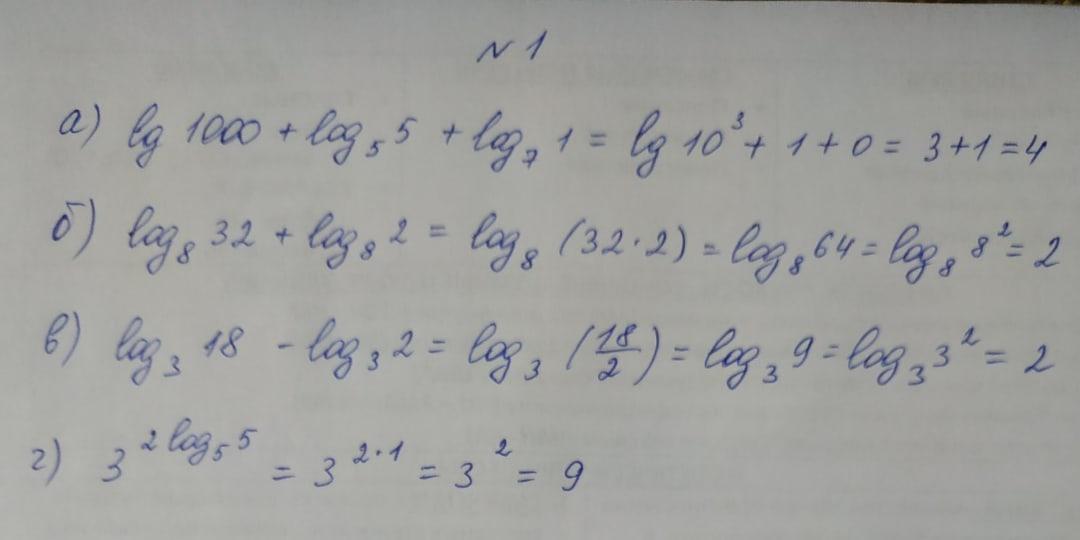 № 1
а) lg 1000 + log₅ 5 + log₇ 1 = lg 10³ + 1 + 0 = 3+1 = 4
б) log₈ 32 + log₈ 2 = log₈ (32·2) = log₈ 64 = log₈ 8² = 2
в) log₃ 18 - log₃ 2 = log₃ (18/2) = log₃ 9 = log₃ 3² = 2
г) 3^(2 log₅ 5) = 3^(2·1) = 3² = 9